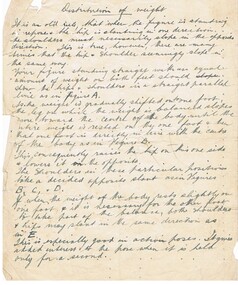 Distribution of weight
It is an old rule, that when the figure is standing
in repose the hip is slanting in one direction &
the shoulders must necessarily slope in the opposite
direction. This is true, however there are many
times that the hip & shoulder seemingly slope in
the same way.
Your figure standing straight with an equal
amount of weight on both feet should
show the hips & shoulders in a straight parallel
line as in Fig
weight is gradually shifted onto one foot,
the leg on which the weight is balanced
more toward the center of the body until the
entire weight is rested on the one foot & the
foot is directly in line with the
of the body as in Figure B.
This consequently raises the hip on this side
& lowers it on the opposite.
The shoulders in these particular positions
take a decided opposite slant as in Figures
B, C, & D.
If when the weight of the body rests slightly on
one foot & it is necessary for the other foot
to take part of the balance, both shoulders
& hips may slant in the same direction as
in E.
This is especially good in action poses. It gives
added interest to the pose when it is held
only for a second.